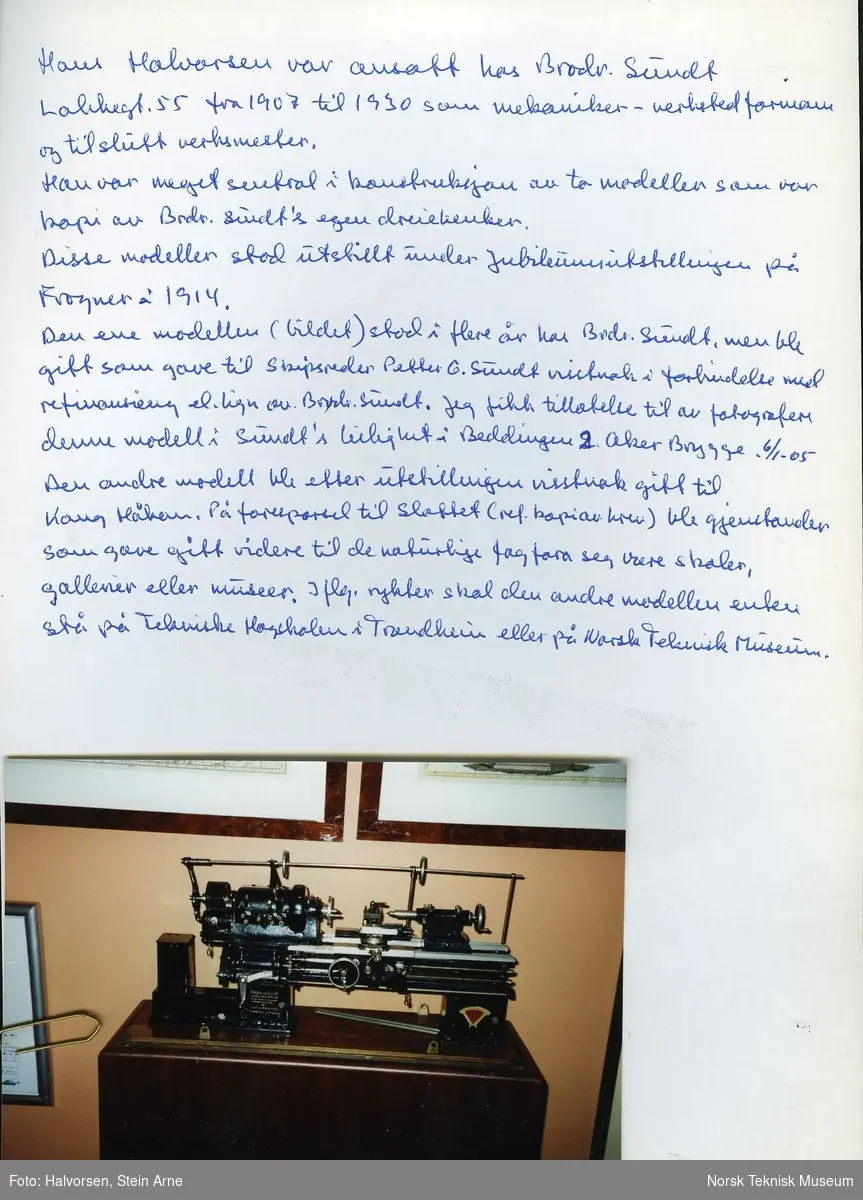 Hans Halvorsen var ansatt hos Brødr. Sundt
Lakkegt. 55 fra 1907 til 1930 som mekaniker - verkstedformann
og tilslutt verksmester.
Han var meget sentral i konstruksjon av to modeller som var
kopi av Brdr. Sundt's egen dreiebenker.
Disse modeller stod utstillt under Jubileumsutstillingen på
Frogner i 1914.
Den ene modellen (bildet) stod i flere år hos Brdr. Sundt, men ble
gitt som gave til Skipsreder Petter C. Sundt visstnok i forbindelse med
refinansieng el.lign av Brødr. Sundt. Jeg fikk tillatelse til av fotografere
denne modell i Sundt's leilighet i Beddingen 2. Aker Brygge. 6/1-05
Den andre modell ble etter utstillingen visstnok gitt til
Kong Håkon. På forespørsel til Slottet (ref. kopi av brev) ble gjenstander
som gave gitt videre til de naturlige fagfora seg være skoler,
gallerier eller museer. Iflg. rykter skal den andre modellen enten
stå på Tekniske Høgskolen i Trondheim eller på Norsk Teknisk Museum.
Foto: Halvorsen, Stein Arne
Norsk Teknisk Museum